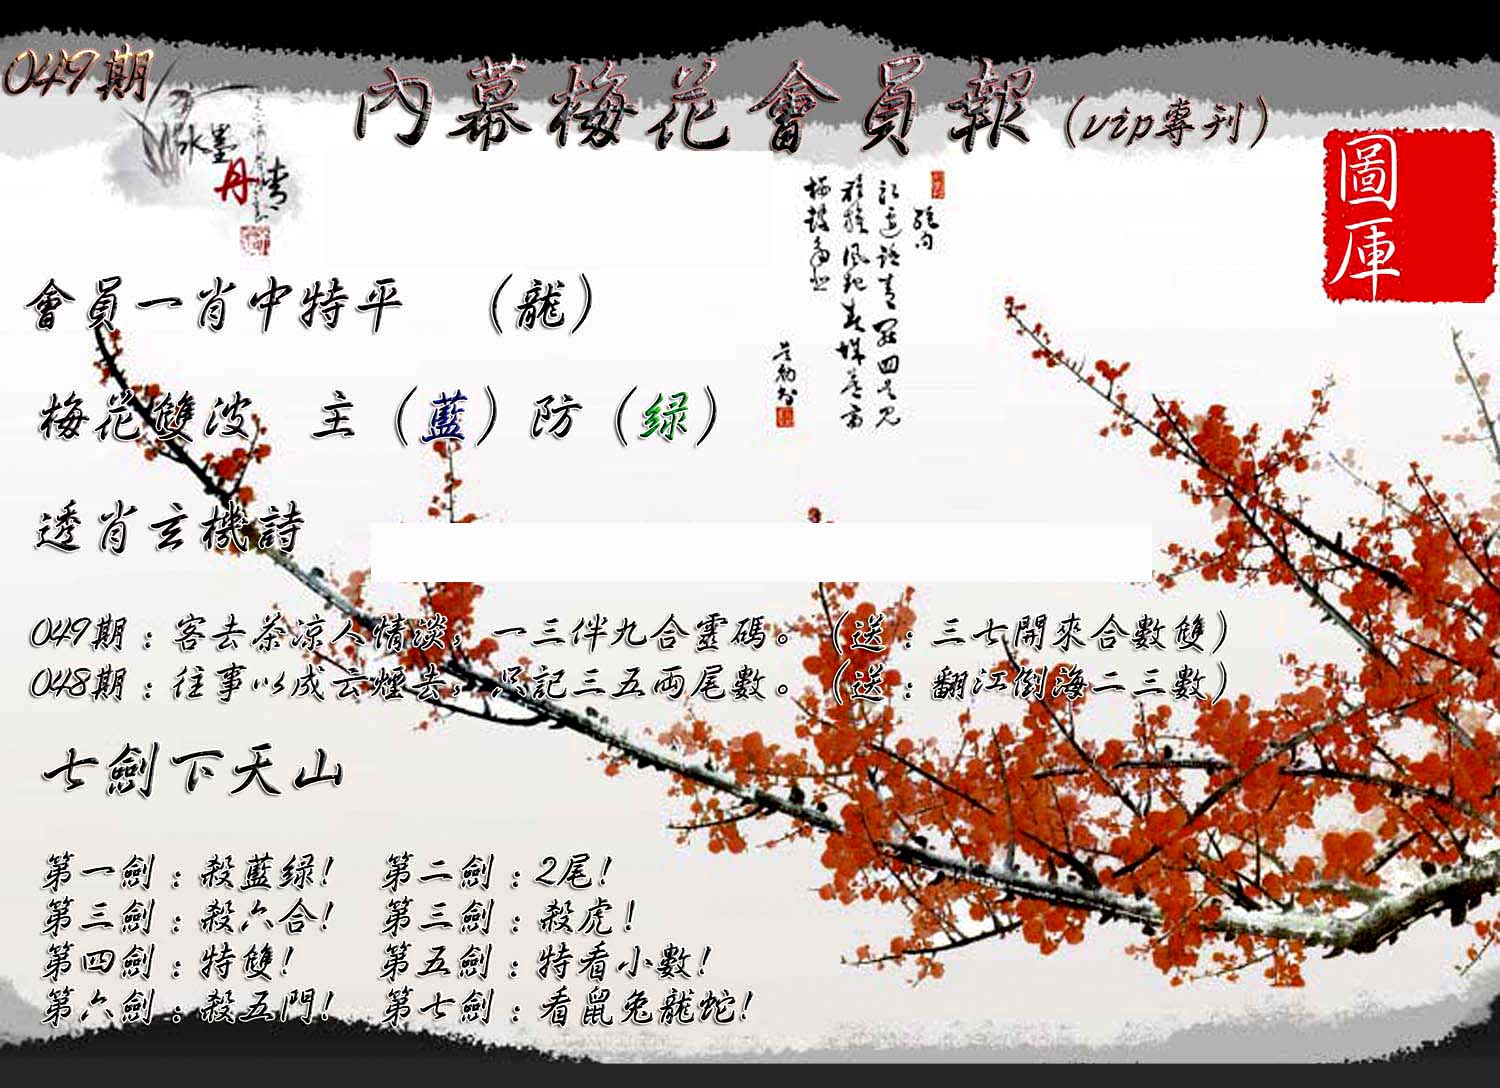 049期
內幕梅花會員報（vip專刊）
水墨
丹青
圖庫
會員一肖中特平　（龍）
梅花雙波　主（藍）防（绿）
透肖玄機詩
049期：客去茶凉人情淡，一三伴九合靈碼。（送：三七開來合數雙）
048期：往事以成云煙去，只記三五兩尾數。（送：翻江倒海二三數）
七劍下天山
第一劍：殺藍绿！　第二劍：2尾！
第三劍：殺六合！　第三劍：殺虎！
第四劍：特雙！　第五劍：特看小數！
第六劍：殺五門！　第七劍：看鼠兔龍蛇！